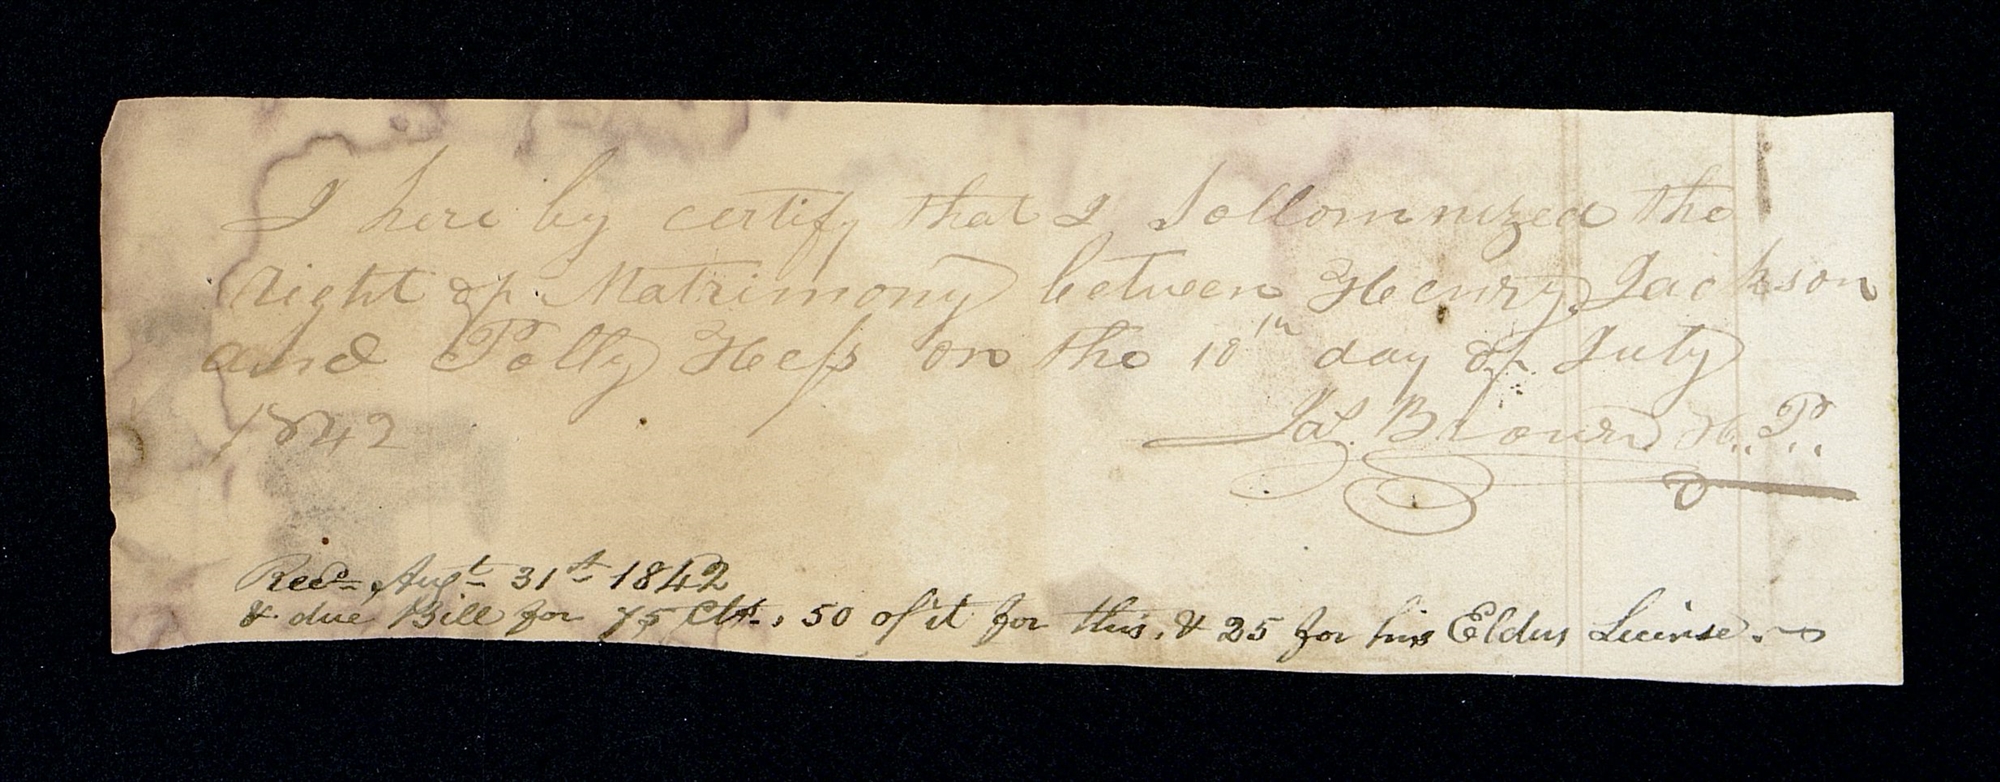 I here by certify that I Sollomnized the
right of Matrimony between Henry Jackson
and Polly Hess on the 10th day of July
1842
Jas. Brown H. P.
Recd. Augt 31st 1842
& due Bill for 75 Cts., 50 of it for this, & 25 for his Elders License.